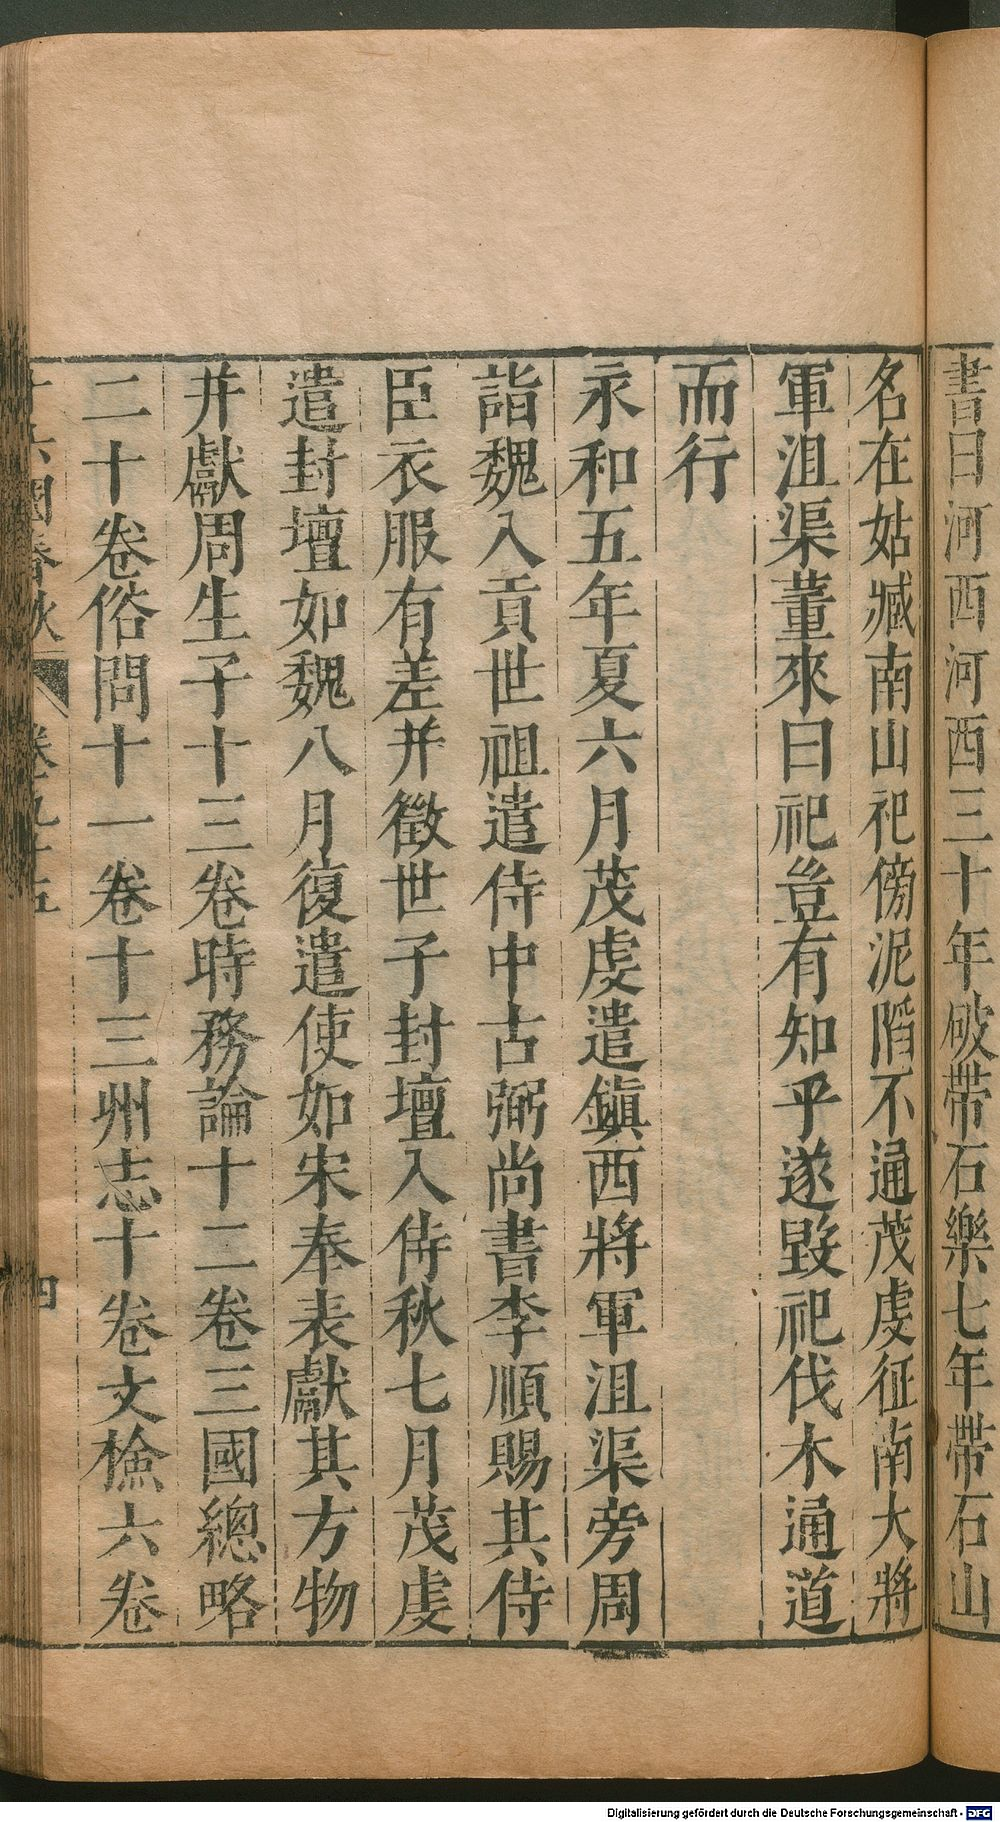 書曰河西河西三十年破帶石樂七年帶石山
名在姑臧南山祀傍泥陷不通茂虔征南大將
軍沮渠董來曰祀豈有知乎遂毀祀伐木通道
而行
永和五年夏六月茂虔遣鎭西將軍沮渠旁周
詣魏入貢世祖遣侍中古弼尚書李順賜其侍
臣衣服有差并徵世子封壇入侍秋七月茂虔
遣封壇如魏八月復遣使如宋奉表獻其方物
并獻周生子十三卷時務論十二卷三國總略
二十卷俗問十一卷十三州志十卷文檢六卷
十六國春秋 卷九十五 四
Digitalisierung gefördert durch die Deutsche Forschungsgemeinschaft - DFG